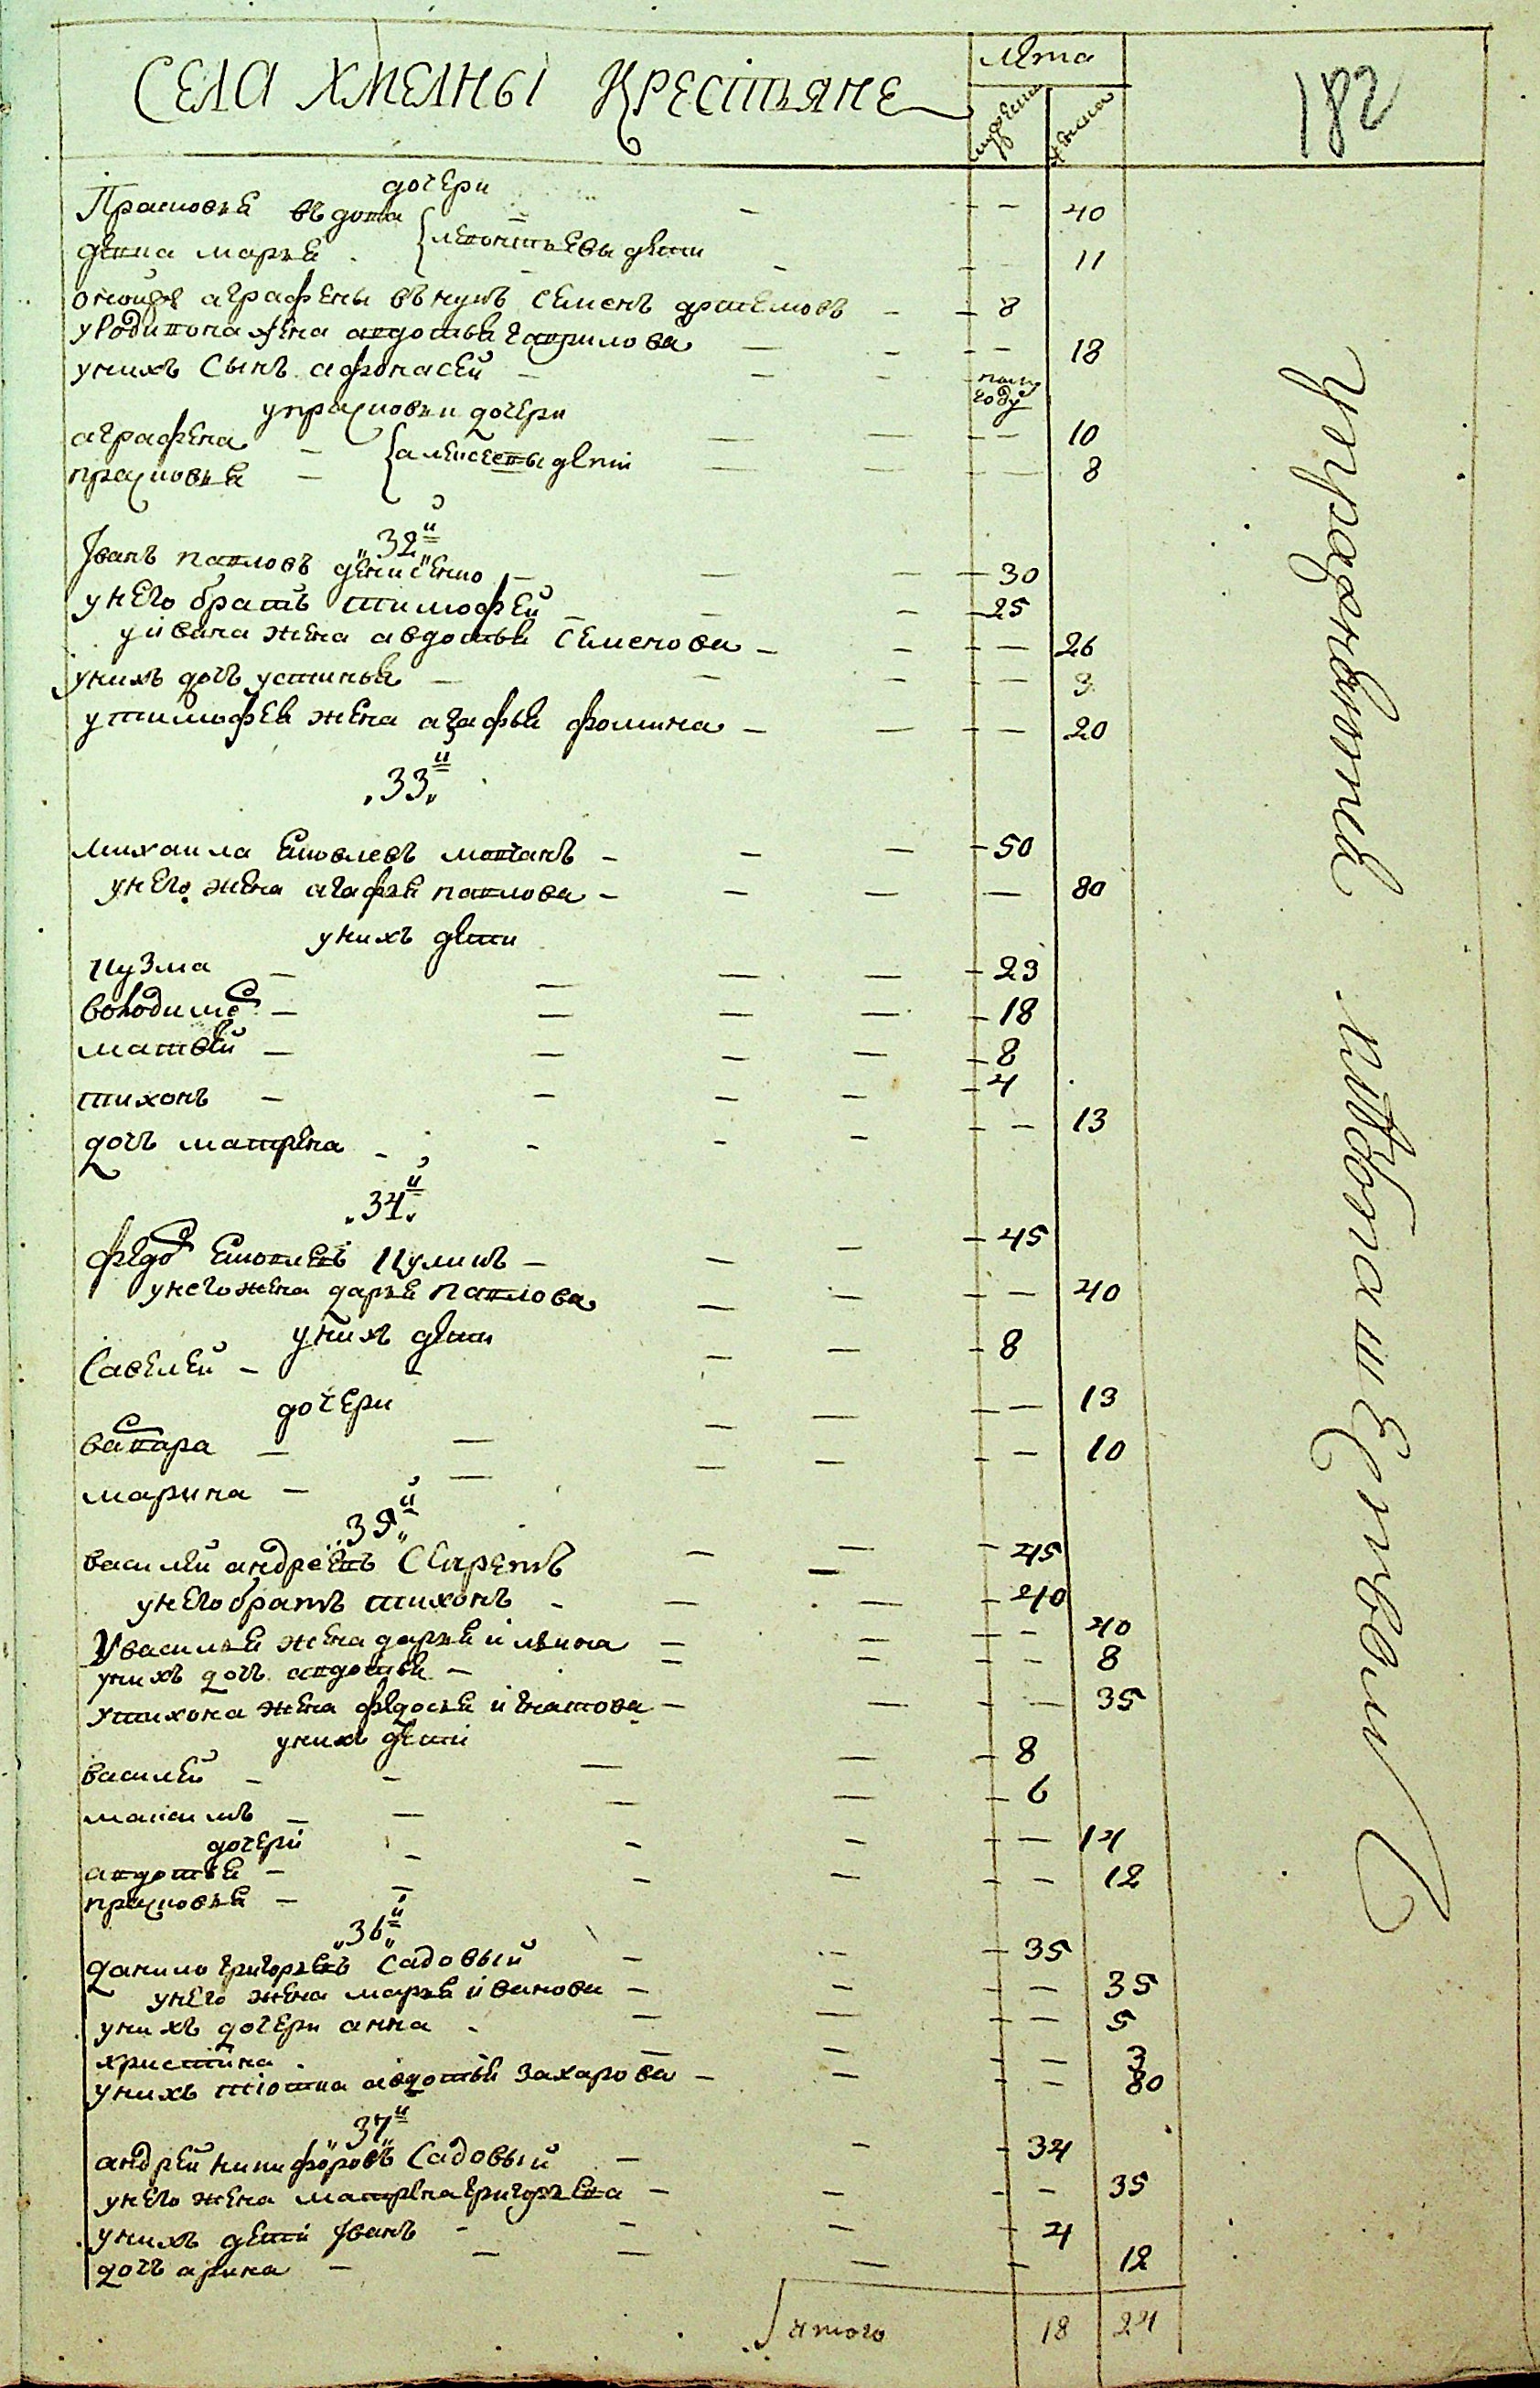 СЕЛА ХМЕЛНЫ КРЕСТЬЯНЕ
лета
мужеска женска
182
дочери
Прасковья вдова 40
девка марья леонтьевы дети 11
аграфены внукъ семенъ 8
уродивона жена авдотья гаврилова 18
унихъ сынъ афонасей полу году
упрасковьи дочери
аграфена 10
прасковья алексеевы дети 8
32й
Iванъ павловъ денисенко 30
унего братъ тимофей 25
уивана жена авдотья семенова 26
унихъ дочь устинья 3
утимофея жена агафья фомина 20
33й
михаила яковлевъ 50
унего жена агафья павлова 80
унихъ дети
кузма 23
володимеръ 18
матвей 8
тихонъ 4
дочь матрена 13
34й
федоръ яковлевъ куликъ 45
унего жена дарья павлова 40
унихъ дети
савелей 8
дочери
варвара 13
марина 10
35й
василей андреевъ 45
унего братъ тихонъ 40
увасилья жена дарья iлвина 40
унихъ дочь авдотья 8
утихона жена федосья игнатова 35
унихъ дети
василей 8
максимъ 6
дочери
авдотья 14
прасковья 12
36й
данило григорьевъ садовый 35
унего жена марья иванова 35
унихъ дочери анна 5
христина 3
унихъ тiотка авдотья захарова 80
37й
андрей никифоровъ садовый 34
унего жена матрена григорьева 35
унихъ дети Iванъ 4
дочь арина 12
итого 18 24